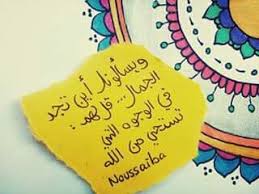 ويسألونك أين تجد
الجمال... قل لهم:
في الوجوه التي
تستحي من الله
Noussaiba